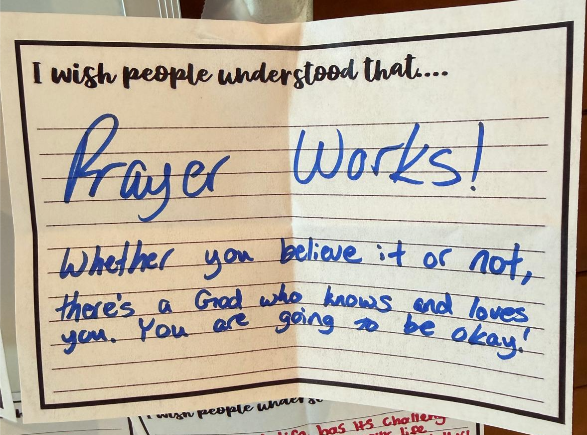 I wish people understood that....
Prayer Works!
Whether you believe it or not,
there's a God who knows and loves
you. You are going to be okay!
I wish people underst
life has its challeng
life